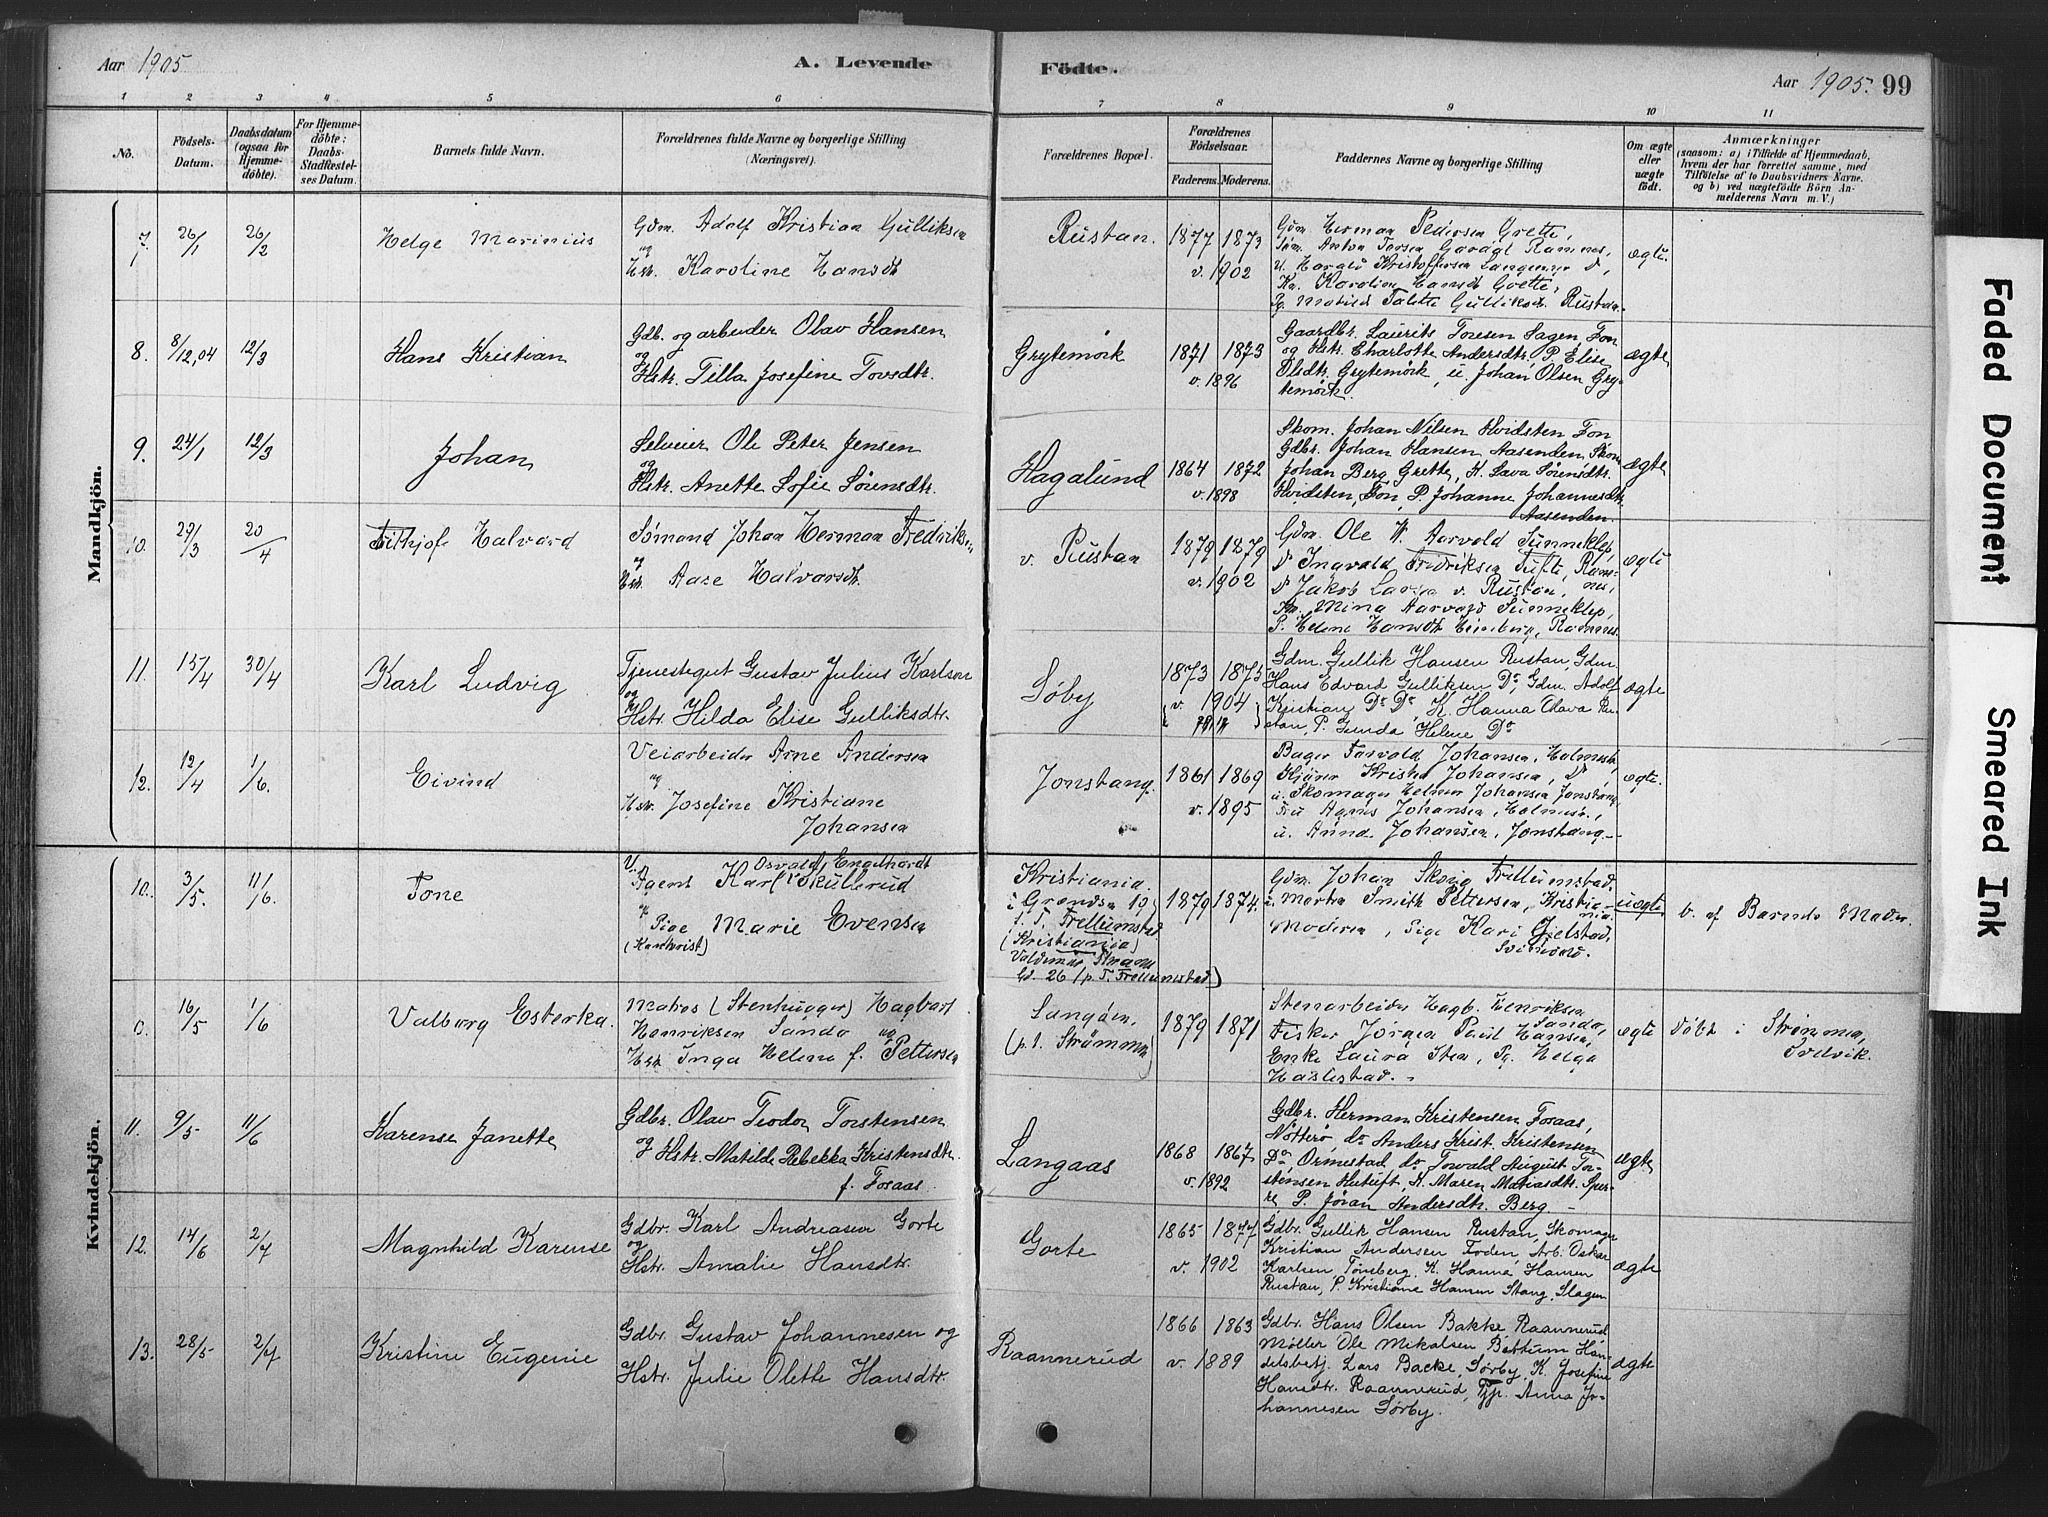 Aar 1905
A. Levende
Födte.
Aar 1905. 99
1 2 3 4 5 6 7 8 9 10 11
No.
Födsels-
Datum.
Daabsdatum
(ogsaa for
Hjemme-
döbte).
For Hjemme-
döbte:
Daabs-
Stadfæstel-
ses Datum.
Barnets fulde Navn.
Forældrenes fulde Navne og borgerlige Stilling
(Næringsvei).
Forældrenes Bopæl.
Forældrenes
Födselsaar.
Faderens. Moderens.
Faddernes Navne og borgerlige Stilling
Om ægte
eller
uægte
födt.
Anmærkninger
(saasom: a) i Tilfælde af Hjemmedaab,
hvem der har forrettet samme, med
Tilföielse af to Daabsvidners Navne,
og b) ved uægtefödte Börn An-
melderens Navn m. V.)
Mandkjön.
7. 26/1 26/2 Helge Marinius
Gdm. Adolf Kristian Gulliksen
og
Hst. Karoline Hansdt
Rustan.
1877 1873
v. 1902
Gdm Herman Pedersen Grette,
Søm. Anton Torsen Ramnes,
U. Harald Kristoffersen
Kn. Karoline Hansdt Grette,
Pg. Gulliksdt. Rustan.
ægte.
8. 8/12,04 12/3 Hans Kristian
Gdb. og arbeider Olav Hansen
og
Hstr. Tilla Josefine Tovsdtr.
Grytemörk
1871 1873
v. 1896
Gaardbr. Laurits Toresen Sagen, Fon
og Hstr. Charlotte Andersdtr. P. Elise
Olsdtr. Grytemörk, u. Johan Olsen Gry-
temörk.
ægte
9. 24/1 12/3 Johan
Selveier Ole Peter Jensen
og
Hstr. Anette Sofie Sörensdtr.
Hagalund
1864 1872
v. 1898
Skom. Johan Nilsen Hvidsten Fon
Gdbr. Johan Hansen Aasenden, Skom
Johan Berg Grette, K. Lava Sörensdtr.
Hvidsten, Fon, P. Johanne Johannesdtr.
Aasenden.
ægte
10. 29/3 20/4 Frithjof Halvard
Sömand Johan Herman Fredriksen
og
Hst. Aase Halvorsdt.
v. Rustan
1879 1879
v. 1902
Gdm. Ole H. Aarvold Sunneklep,
Do Ingvald Fridriksen Tufte, Ram-
nes,
Do Jakob Larsen v. Rustan,
Kn. Mina Aarvold Sunneklep,
P. Helene Hansdt Ramnes.
ægte
11. 15/4 30/4 Karl Ludvig
Tjenestegut Gustav Julius Karlsen
og
Hstr. Hilda Elise Gulliksdtr.
Söby
1873 1875
v. 1904
Gdm. Gullik Hansen Rustan, Gdm.
Hans Edvard Gulliksen Do, Gdm. Adolf
Kristian Do Do, K. Hanna Olava Ru-
stan, P. Gunda Helene Do
ægte
12. 12/4 1/6. Eivind
Veiarbeider Arne Andersen
og
Hst. Josefine Kristiane
Johansen
Jonstang.
1861 1869
v. 1895
Bager Torvald Johansen, Holmest.
Kristen Johansen, Do,
u. Skomager Helmer Johansen Jonstang,
Fru Agnes Johansen, Holmest.,
u. Anna Johansen, Jonstang.
ægte.
Kvindekjön.
10. 3/5. 11/6. Tone
U.
Osvald Engelhardt
Agent Karl Skullerud
og
Pige Marie Evensen
Kristiania.
Grændsen 19
p. T. Trellumstad
(Kristiania)
Gd. 26 (p. T. Trellumstad)
1879 1874.
Gdm. Johan Skoug Trellumstad.
u. Marta Smith Pettersen, Kristia-
nia.
Moderen, Pige Kari Gjelstad,
Svindvold.
uægte
b. af Barnets Moder.
0. 16/5 1/6 Valborg Esterka.
Matros (Stenhugger) Hagbart
Henriksen Sando og
Hst Inga Helene f. Pettersen
Langöen,
(p.t. Strömmen)
1879 1871
Stenarbeider Hagb. Henriksen
Sando,
Fisker Jörgen Paul Hansen,
Enke Laura Sten, Pg. Helga
Haslestad.
ægte
Döbt i Strömmen,
Svelvik.
11. 9/5 11/6 Karense Janette
Gdbr. Olav Teodor Torstensen
og Hstr. Matilde Rebekka Kristensdtr.
f. Foraas.
Langaas
1868 1867.
v. 1892
Gdbr. Herman Kristensen Foraas,
Nötterö, do Anders Krist. Kristensen
Do, Ormestad, do Torvald August Tor-
stensen Hutuft, K. Maren Matiasdtr. Sper-
re, P. Jöran Andersdtr. Berg.
ægte
12. 14/6 2/7 Magnhild Karense
Gdbr. Karl Andreasen Gorte
og
Hstr. Amalie Hansdtr.
Gorte
1865 1877
v. 1902
Gdbr. Gullik Hansen Rustan, Skomager
Kristian Andersen Foden, Arb. Oskar
Karlsen Tönsberg. K. Hanne Hansen
Rustan, P. Kristiane Hansen Stang, Slagen
ægte
13. 28/5 2/7 Kristine Eugenie
Gdbr. Gustav Johannesen og
Hstr. Julie Olette Hansdtr.
Raannerud
1866 1863
v. 1889
Gdbr. Hans Olsen Bakke Raannerud
Möller Ole Mikalsen Bettum Han-
delsbetj. Lars Backe, Sörby, K. Josefine
Hansdtr. Raannerud, Tjp. Anna Jo-
hannesen Sörby.
ægte
Faded Document
Smeared Ink